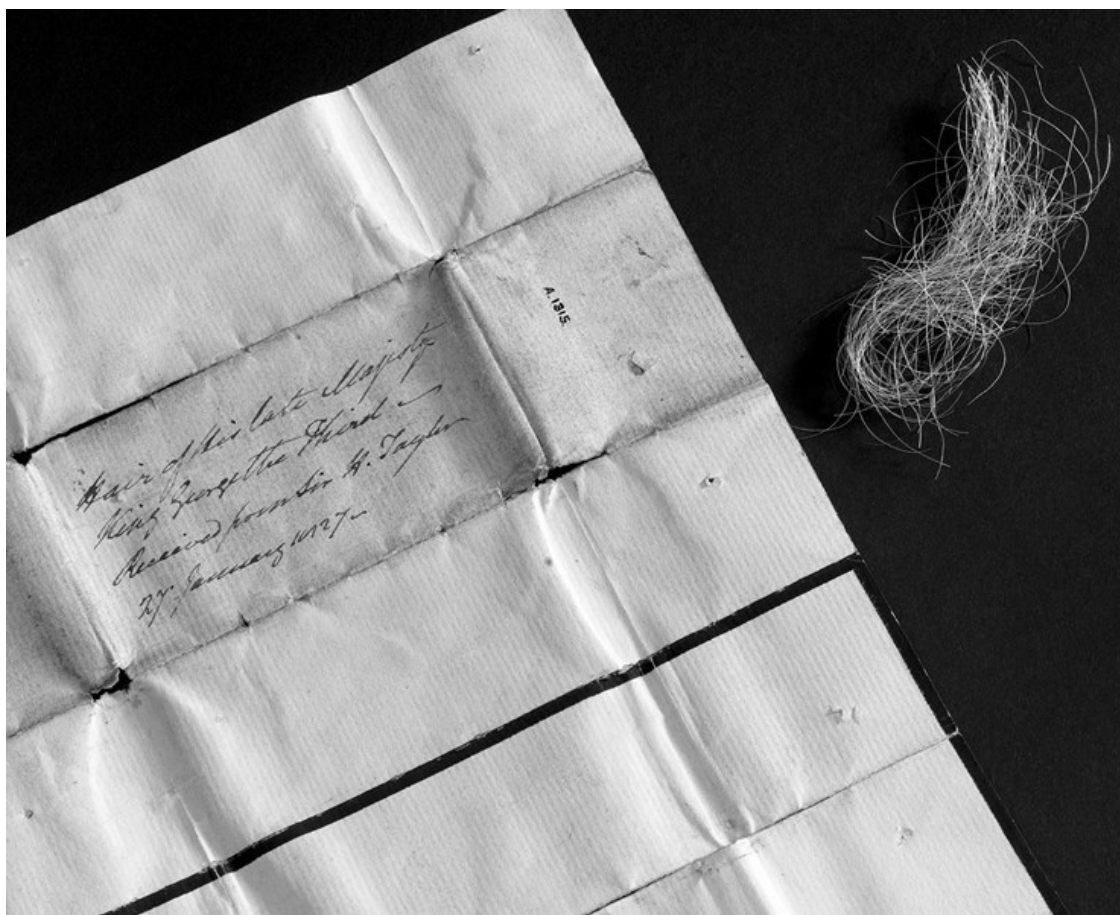 Hair of his late Majesty
King George the Third
Received from Sir H. Taylor
27 January 1827
A.1315.